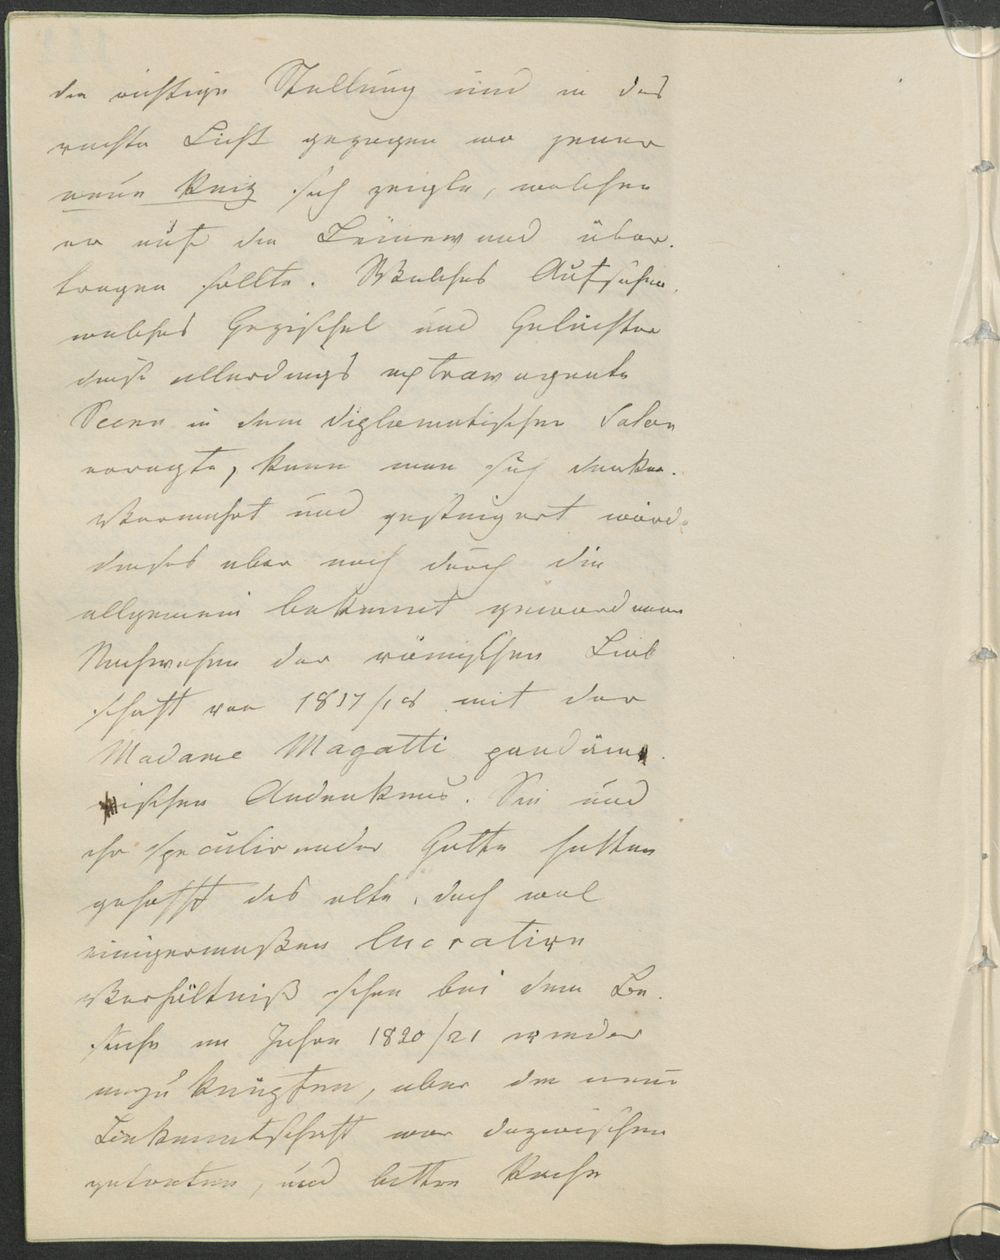 die richtige Stellung und in das
rechte Licht gezogen wo jener
neue Reiz sich zeigte, welchen
er auf die Leinewand über-
tragen sollte. Welches Aufsehen,
welches Gezischel und Gelächter
diese allerdings extravagante
Scene in dem diplomatischen Salon
erregte, kann man sich denken.
Vermehrt und gesteigert wurde
dieses aber noch durch die
allgemein bekannt gewordenen
Nachwehen der römischen Lieb
schaft von 1817/18 mit der
Madame Magatti pandäm-
nischen Andenkens. Sie und
ihr speculirender Gatte hatten
gehofft das alte, doch wol
einigermaßen lucrative
Verhältniß schon bei dem Be-
suche im Jahre 1820/21 wieder
anzuknüpfen, aber die neue
Bekanntschaft war dazwischen
getreten, und bittre Rache